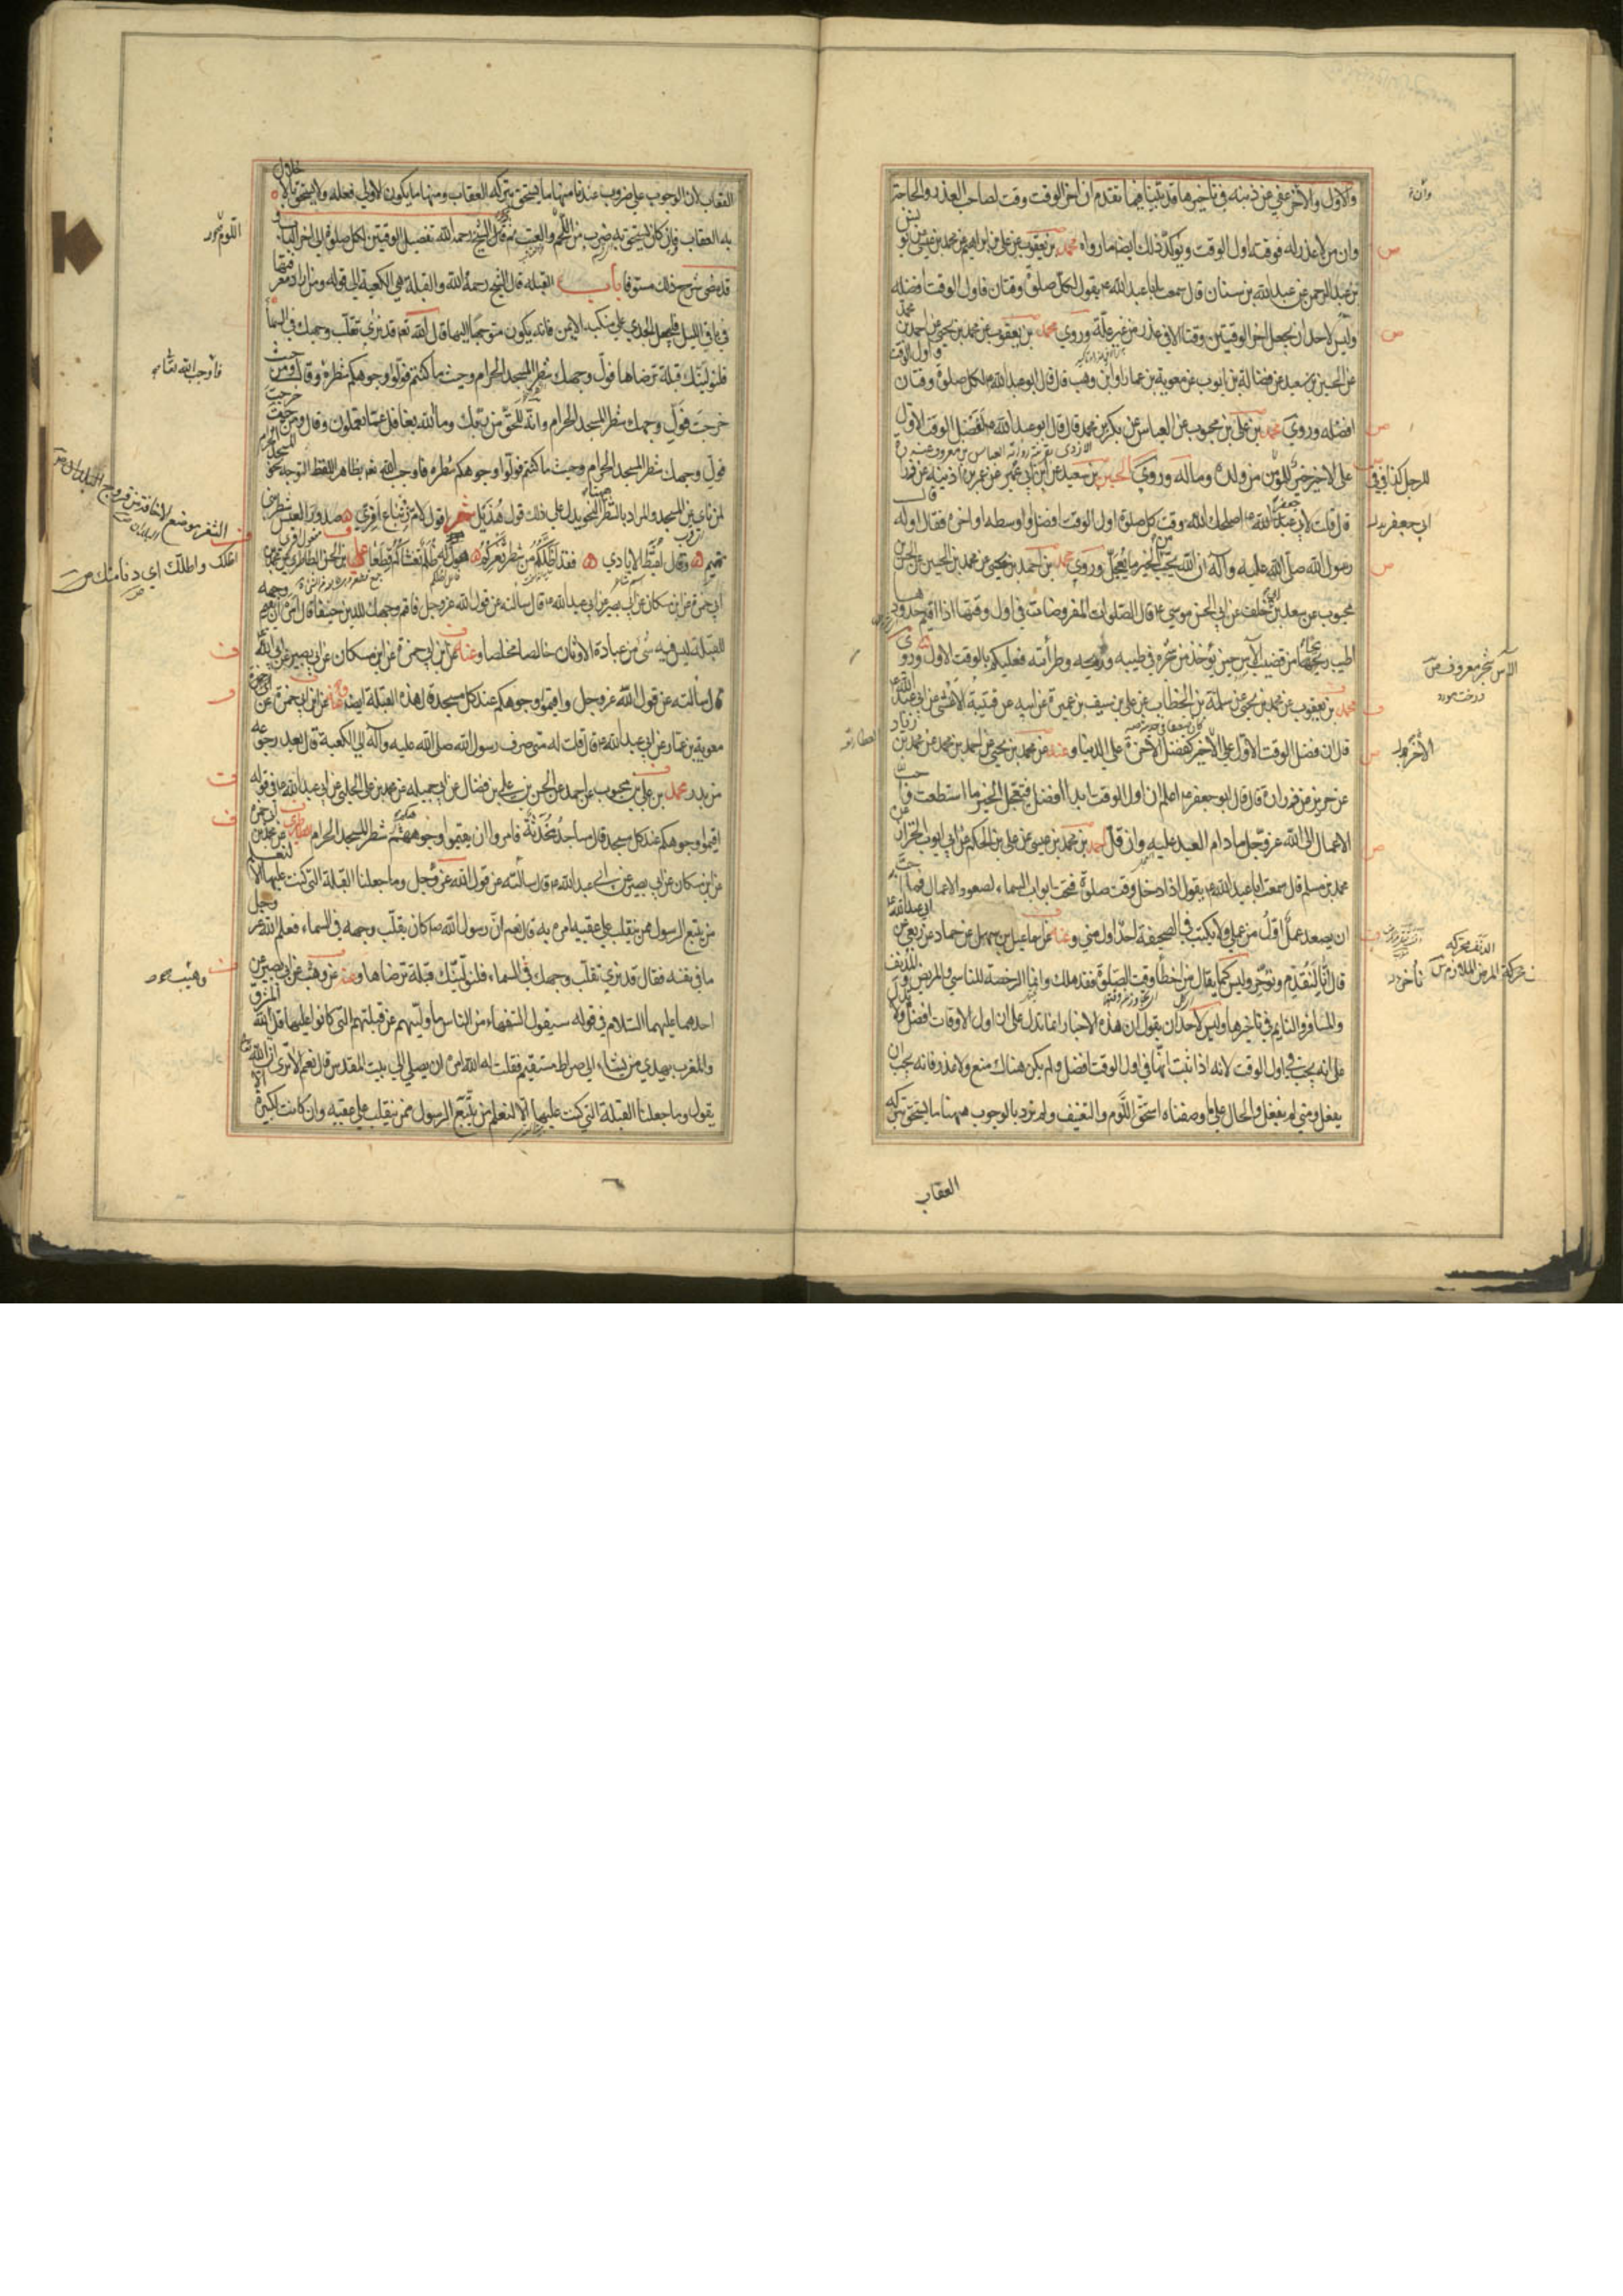 والاول والآخر عفي عن ذنبه في تأخيرها قد بينا فيما تقدم ان اخر الوقت وقت لصاحب العذر والحاجة
وان من لا عذر له فوقته اول الوقت ويؤكد ذلك ايضا ما رواه محمد بن يعقوب عن علي بن ابراهيم عن محمد بن عيسى عن يونس
بن عبد الرحمن عن عبد الله بن سنان قال سمعت ابا عبد الله ع يقول لكل صلوة وقتان فاول الوقت افضله
وليس لاحد ان يجعل اخر الوقتين وقتا الا في عذر من غير علة وروى محمد بن يعقوب عن محمد بن يحيى عن احمد بن محمد
عن الحسين بن سعيد عن فضالة بن ايوب عن معوية بن عمار او ابن وهب قال قال ابو عبد الله ع لكل صلوة وقتان واول الوقت
افضله وروى محمد بن علي بن محبوب عن العباس عن بكر بن محمد قال قال ابو عبد الله ع لفضل الوقت الاول
على الاخير خير للمؤمن من ولده وماله وروى الحسين بن سعيد عن ابن ابي عمير عن عمر بن اذينة عن زرارة
قال قلت لابي جعفر ع اصلحك الله وقت كل صلوة اول الوقت افضل او وسطه او اخره فقال اوله قال
رسول الله صلى الله عليه وآله ان الله يحب من الخير ما يعجل وروى محمد بن احمد بن يحيى عن محمد بن الحسين عن الحسن بن
محبوب عن سعد بن ابي خلف عن ابي الحسن موسى ع قال الصلوات المفروضات في اول وقتها اذا اقيم حدودها
اطيب ريحا من قضيب الآس حين يؤخذ من شجره في طيبه وريحه وطراته فعليكم بالوقت الاول وروى
محمد بن يعقوب عن محمد بن يحيى عن سلمة بن الخطاب عن علي بن سيف بن عميرة عن ابيه عن قتيبة الاعشى عن ابي عبد الله ع
قال ان فضل الوقت الاول على الاخير كفضل الاخرة على الدنيا وعنه عن محمد بن يحيى عن احمد بن محمد عن محمد بن زياد
عن حريز عن زرارة قال قال ابو جعفر ع اعلم ان اول الوقت ابدا افضل فتعجل الخير ما استطعت واحب
الاعمال الى الله عز وجل ما دام العبد عليه وان قل احمد بن محمد بن عيسى عن علي بن الحكم عن ابي ايوب الخزاز عن
محمد بن مسلم قال سمعت ابا عبد الله ع يقول اذا دخل وقت صلوة فتحت ابواب السماء لصعود الاعمال فما احب
ان يصعد عمل اول من عملي ولا يكتب في الصحيفة احد اول مني وعنه عن اسماعيل بن سهل عن حماد عن ربعي عن ابي عبد الله ع
قال انا لنقدم ونؤخر وليس كما يقال من اخطأ وقت الصلوة فقد هلك وانما الرخصة للناسي والمريض والمدنف
والمسافر والنايم في تاخيرها وليس لاحد ان يقول ان هذه الاخبار انما تدل على ان اول الاوقات افضل ولا تدل
على انه يجب في اول الوقت لانه اذا ثبت انها في اول الوقت افضل ولم يكن هناك منع ولا عذر فانه يجب ان
يفعل ومتى لم يفعل والحال على ما وصفناه استحق اللوم والتعنيف ولم نرد بالوجوب ههنا ما يستحق بتركه
العقاب
الآس شجر معروف ص
الدنف محركة
العقاب لان الوجوب على ضروب عندنا منها ما يستحق بتركه العقاب ومنها ما يكون الاولى فعله ولا يستحق بالاخلال
به العقاب وان كان يستحق به ضرب من اللوم والعتب ثم قال الشيخ رحمه الله تفصيل الوقتين لكل صلوة الى اخر الباب
قد مضى شرح ذلك مستوفا باب القبلة قال الشيخ رحمه الله والقبلة هي الكعبة الى قوله ومن اراد معرفتها
في باقي الليل فليجعل الجدي على منكبه الايمن فانه يكون متوجها اليها قال الله تعالى قد نرى تقلب وجهك في السماء
فلنولينك قبلة ترضاها فول وجهك شطر المسجد الحرام وحيث ما كنتم فولوا وجوهكم شطره وقال ومن حيث
خرجت فول وجهك شطر المسجد الحرام وانه للحق من ربك وما الله بغافل عما تعملون وقال ومن حيث خرجت
فول وجهك شطر المسجد الحرام وحيث ما كنتم فولوا وجوهكم شطره فاوجب الله تعم بظاهر اللفظ التوجه نحو المسجد الحرام
لمن نأى عن المسجد والمراد بالشطر النحو يدل على ذلك قول هذيل اقول لام زنباع اقيمي صدور العيس شطر بني
تميم وقال لقيط الايادي فقد اظلكم من شطر ثغركم هول له ظلم تغشاكم قطعا علي بن الحسن الطاطري عن محمد بن
ابي حمزة عن ابن مسكان عن ابي بصير عن ابي عبد الله ع قال سالته عن قول الله عز وجل فاقم وجهك للدين حنيفا قال امره ان يقيم وجهه
للقبلة ليس فيه شئ من عبادة الاوثان خالصا مخلصا وعنه عن ابن ابي حمزة عن ابن مسكان عن ابي بصير عن ابي عبد الله ع
قال سألته عن قول الله عز وجل واقيموا وجوهكم عند كل مسجد قال هذه القبلة ايضا وعنه عن ابن ابي حمزة عن
معوية بن عمار عن ابي عبد الله ع قال قلت له متى صرف رسول الله صلى الله عليه وآله الى الكعبة قال بعد رجوعه
من بدر محمد بن علي بن محبوب عن احمد عن الحسن بن علي بن فضال عن ابي جميلة عن محمد بن علي الحلبي عن ابي عبد الله ع في قوله
اقيموا وجوهكم عند كل مسجد قال مساجد محدثة فامروا ان يقيموا وجوههم شطر المسجد الحرام الطاطري عن محمد بن ابي حمزة
عن ابن مسكان عن ابي بصير عن ابي عبد الله ع قال سألته عن قول الله عز وجل وما جعلنا القبلة التي كنت عليها الا لنعلم
من يتبع الرسول ممن ينقلب على عقبيه امره به قال نعم ان رسول الله ص كان يقلب وجهه في السماء فعلم الله عز وجل
ما في نفسه فقال قد نرى تقلب وجهك في السماء فلنولينك قبلة ترضاها وعنه عن وهيب عن ابي بصير عن
احدهما عليهما السلام في قوله سيقول السفهاء من الناس ما وليهم عن قبلتهم التي كانوا عليها قل لله المشرق
والمغرب يهدي من يشاء الى صراط مستقيم فقلت له الله امره ان يصلي الى بيت المقدس قال نعم الا ترى ان الله تعالى
يقول وما جعلنا القبلة التي كنت عليها الا لنعلم من يتبع الرسول ممن ينقلب على عقبيه وان كانت لكبيرة الا
فاوجب الله تعالى